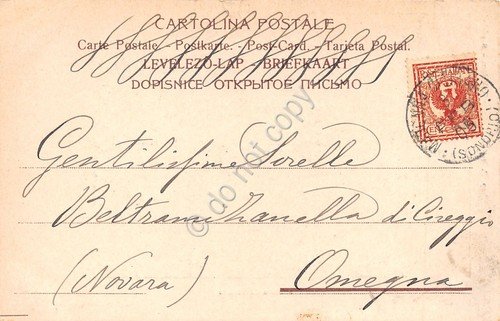 CARTOLINA POSTALE
Carte Postale - Postkarte - Post-Card - Tarjeta Postal
LEVELEZŐ-LAP - BRIEFKAART
DOPISNICE ОТКРЫТОЕ ПИСЬМО
Gentilissime Sorelle
Beltrami Zanella di Cireggio
(Novara) Omegna
(SONDRIO)
do not copy